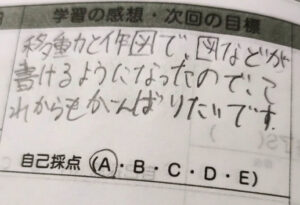 学習の感想・次回の目標
移動力と作図で、図などが
書けるようになったので、こ
れからもがんばりたいです。
自己採点(A・B・C・D・E)